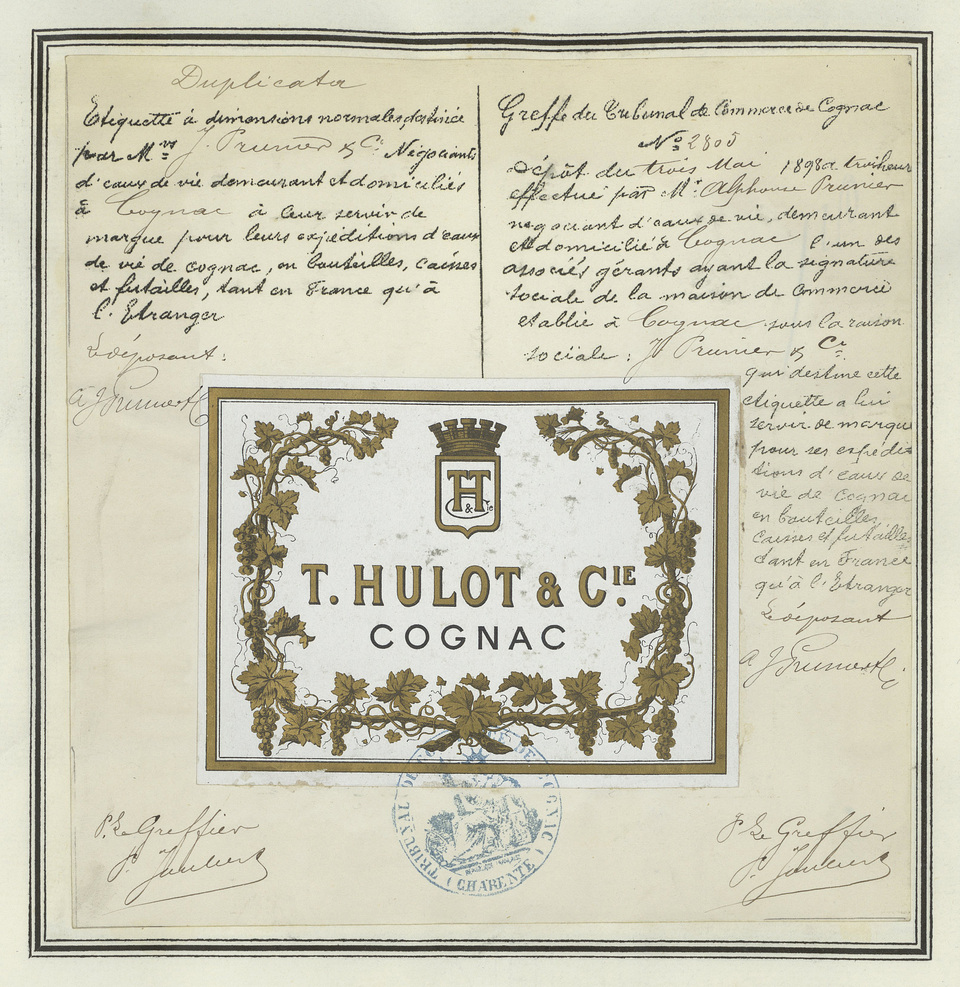 Duplicata
Etiquette à dimensions normales, destinée
par M.rs J. Prunier & Cie Négociants
d'eaux de vie demeurant et domiciliés
à Cognac à leur servir de
marque pour leurs expéditions d'eaux
de vie de cognac, en bouteilles, caisses
et futailles, tant en France qu'à
l'Etranger
Le déposant :
J Prunier & Cie
Greffe du Tribunal de Commerce de Cognac
No 2805
Dépôt du trois Mai 1898 à trois heures
effectué par Mr. Alphonse Prunier
négociant d'eaux de vie, demeurant
et domicilié à Cognac l'un des
associés gérants ayant la signature
sociale de la maison de commerce
etablie à Cognac sous la raison
sociale : J Prunier & Cie
qui destine cette
etiquette a lui
servir de marque
pour ses expédi-
tions d'eaux de
vie de cognac
en bouteilles,
caisses et futailles
tant en France
qu'à l'Etranger
Le déposant
J Prunier & Cie
TH
& Cie
T. HULOT & CIE.
COGNAC
TRIBUNAL DE COMMERCE DE COGNAC
(CHARENTE)
P. Le Greffier
P. Le Greffier